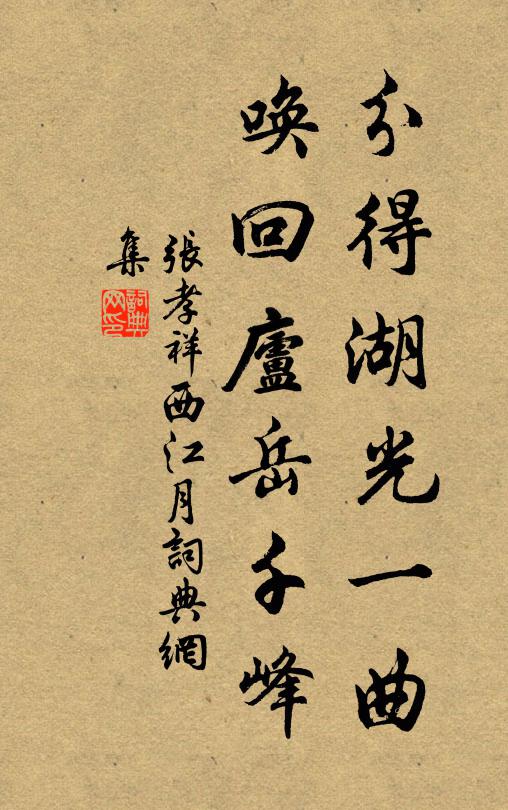 分得湖光一曲
喚回廬岳千峰
張孝祥西江月詞典網
集
詞典网印